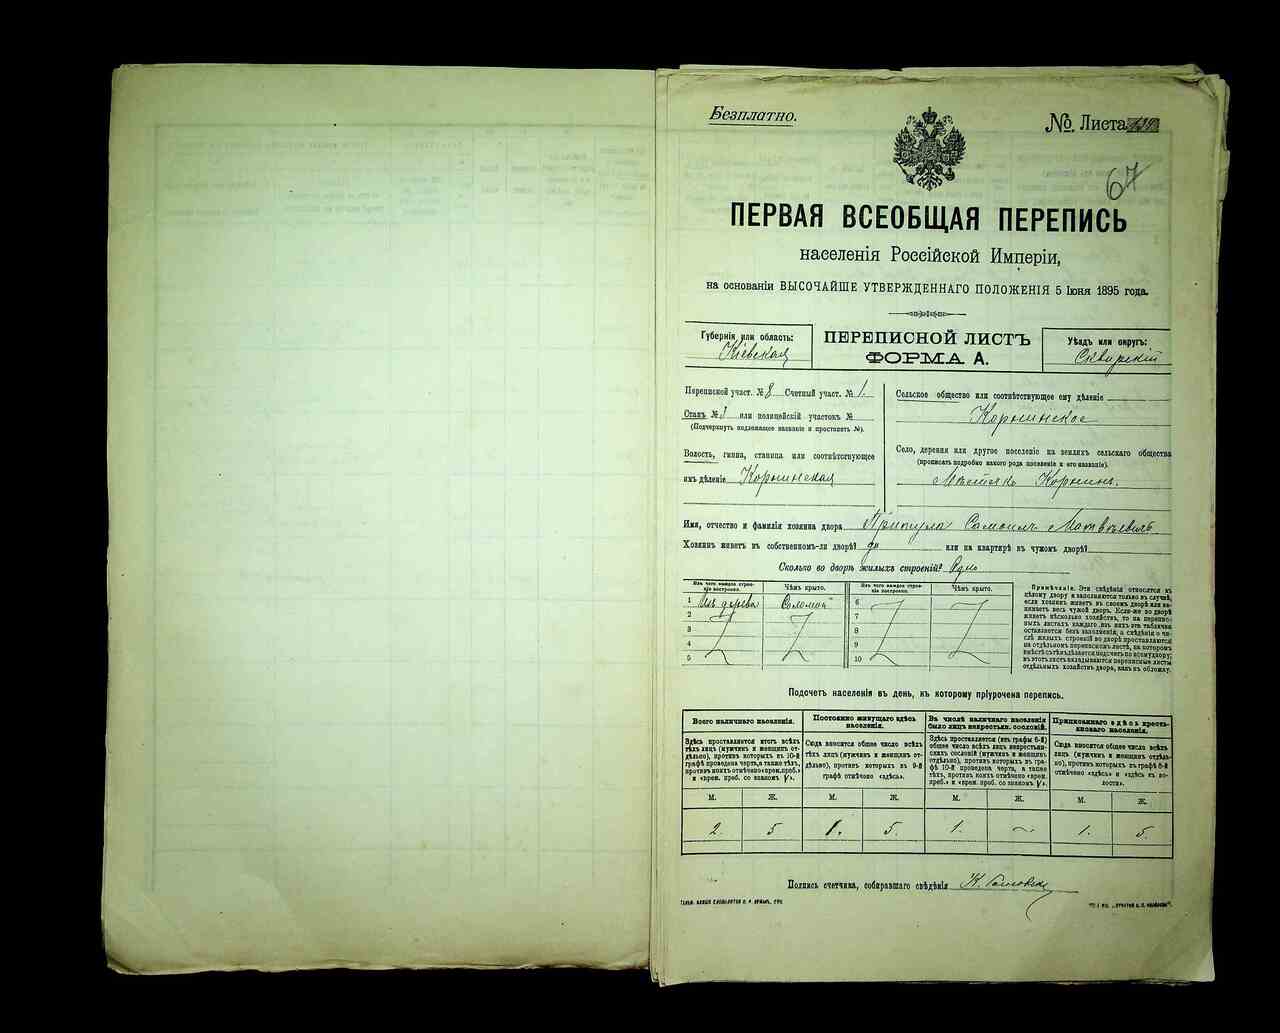 Безплатно.
№ Листа
67
ПЕРВАЯ ВСЕОБЩАЯ ПЕРЕПИСЬ
населенія Россійской Имперіи,
на основаніи ВЫСОЧАЙШЕ УТВЕРЖДЕННАГО ПОЛОЖЕНІЯ 5 Іюня 1895 года.
Губернія или область:
Кіевская
ПЕРЕПИСНОЙ ЛИСТЪ
ФОРМА А.
Уѣздъ или округъ:
Сквирскій
Переписной участ. № 8 Счетный участ. № 1.
Станъ № 3 или полицейскій участокъ №
(Подчеркнуть подлежащее названіе и проставить №).
Волость, гмина, станица или соотвѣтствующее
имъ дѣленіе Корнинская
Сельское общество или соотвѣтствующее ему дѣленіе
Корнинское
Село, деревня или другое поселеніе на земляхъ сельскаго общества
(прописать подробно какого рода поселеніе и его названіе).
Мѣстечко Корнинъ.
Имя, отчество и фамилія хозяина двора Припула Самоилъ Матвѣевичъ
Хозяинъ живетъ въ собственномъ-ли дворѣ? да или на квартирѣ въ чужомъ дворѣ?
Сколько во дворѣ жилыхъ строеній? Одно
Изъ чего каждое строеніе построено. Чѣмъ крыто. Изъ чего каждое строеніе построено. Чѣмъ крыто.
1 Изъ дерева Соломой 6
2 7
3 8
4 9
5 10
Примѣчаніе. Эти свѣдѣнія относятся къ
цѣлому двору и заполняются только въ случаѣ,
если хозяинъ живетъ въ своемъ дворѣ или на-
нимаетъ весь чужой дворъ. Если-же во дворѣ
живетъ нѣсколько хозяйствъ, то на перепис-
ныхъ листахъ каждаго изъ нихъ эта табличка
оставляется безъ заполненія, а свѣдѣнія о чи-
слѣ жилыхъ строеній во дворѣ проставляются
на отдѣльномъ переписномъ листѣ, на которомъ
вмѣстѣ съ тѣмъ дѣлается подсчетъ по всему двору;
въ этотъ листъ вкладываются переписные листы
отдѣльныхъ хозяйствъ двора, какъ въ обложку.
Подсчетъ населенія въ день, къ которому пріурочена перепись.
Всего наличнаго населенія.
Здѣсь проставляется итогъ всѣхъ
тѣхъ лицъ (мужчинъ и женщинъ от-
дѣльно), противъ которыхъ въ 10-й
графѣ проведена черта, а также тѣхъ,
противъ коихъ отмѣчено «врем. преб.»
и «врем. преб. со знакомъ V».
М. Ж.
2. 5
Постоянно живущаго здѣсь
населенія.
Сюда вносится общее число всѣхъ
тѣхъ лицъ (мужчинъ и женщинъ от-
дѣльно), противъ которыхъ въ 9-й
графѣ отмѣчено «здѣсь».
М. Ж.
1. 5.
Въ числѣ наличнаго населенія
было лицъ некрестьян. сословій.
Здѣсь проставляется (изъ графы 6-й)
общее число всѣхъ лицъ некрестьян-
скихъ сословій (мужчинъ и женщинъ
отдѣльно), противъ которыхъ въ гра-
фѣ 10-й проведена черта, а также
тѣхъ, противъ коихъ отмѣчено «врем.
преб.» и «врем. преб. со знакомъ V».
М. Ж.
1. —
Приписаннаго здѣсь кресть-
янскаго населенія.
Сюда вносится общее число всѣхъ
лицъ (мужчинъ и женщинъ отдѣль-
но), противъ которыхъ въ графѣ 8-й
отмѣчено «здѣсь» и «здѣсь въ во-
лости».
М. Ж.
1. 5.
Подпись счетчика, собиравшаго свѣдѣнія К.